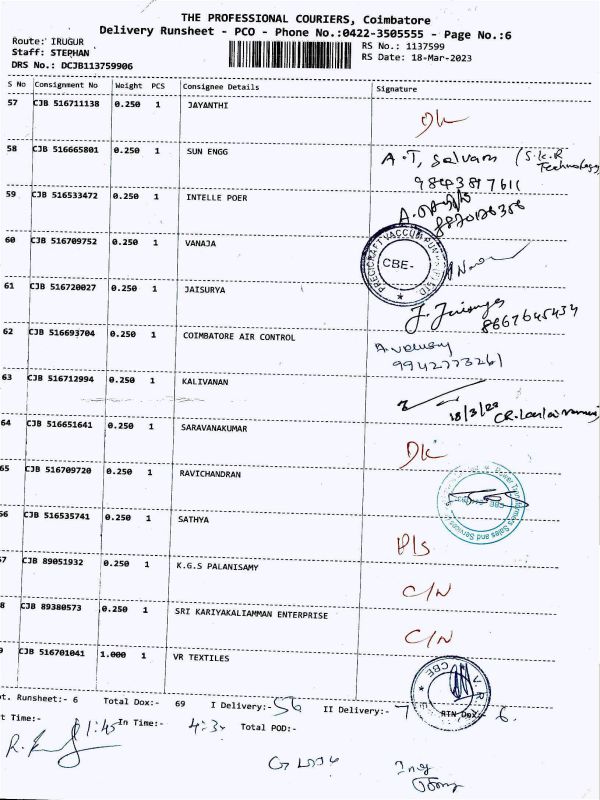 THE PROFESSIONAL COURIERS, Coimbatore
Delivery Runsheet - PCO - Phone No.:0422-3505555 - Page No.:6
Route: IRUGUR
Staff: STEPHAN
DRS No.: DCJB113759906
RS No.: 1137599
RS Date: 18-Mar-2023
S No Consignment No Weight PCS Consignee Details Signature
57 CJB 516711138 0.250 1 JAYANTHI DK
58 CJB 516665801 0.250 1 SUN ENGG A.T, Selvam (S.K.R Technology)
9843897611
59 CJB 516533472 0.250 1 INTELLE POER
60 CJB 516709752 0.250 1 VANAJA
PRECICRAFT VACCUM PUMPS (P) LTD.
CBE-
61 CJB 516720027 0.250 1 JAISURYA J. Jaisurya
8667645434
62 CJB 516693704 0.250 1 COIMBATORE AIR CONTROL
9942773261
63 CJB 516712994 0.250 1 KALIVANAN
18/3/23
64 CJB 516651641 0.250 1 SARAVANAKUMAR DK
65 CJB 516709720 0.250 1 RAVICHANDRAN
Sales and Services
66 CJB 516535741 0.250 1 SATHYA P/S
7 CJB 89051932 0.250 1 K.G.S PALANISAMY C/N
8 CJB 89380573 0.250 1 SRI KARIYAKALIAMMAN ENTERPRISE C/N
9 CJB 516701041 1.000 1 VR TEXTILES
CBE
ot. Runsheet:- 6 Total Dox:- 69 I Delivery:- 56 II Delivery:- 7 RTN Dox:- 6.
t Time:- 11:45 In Time:- 4:30 Total POD:-